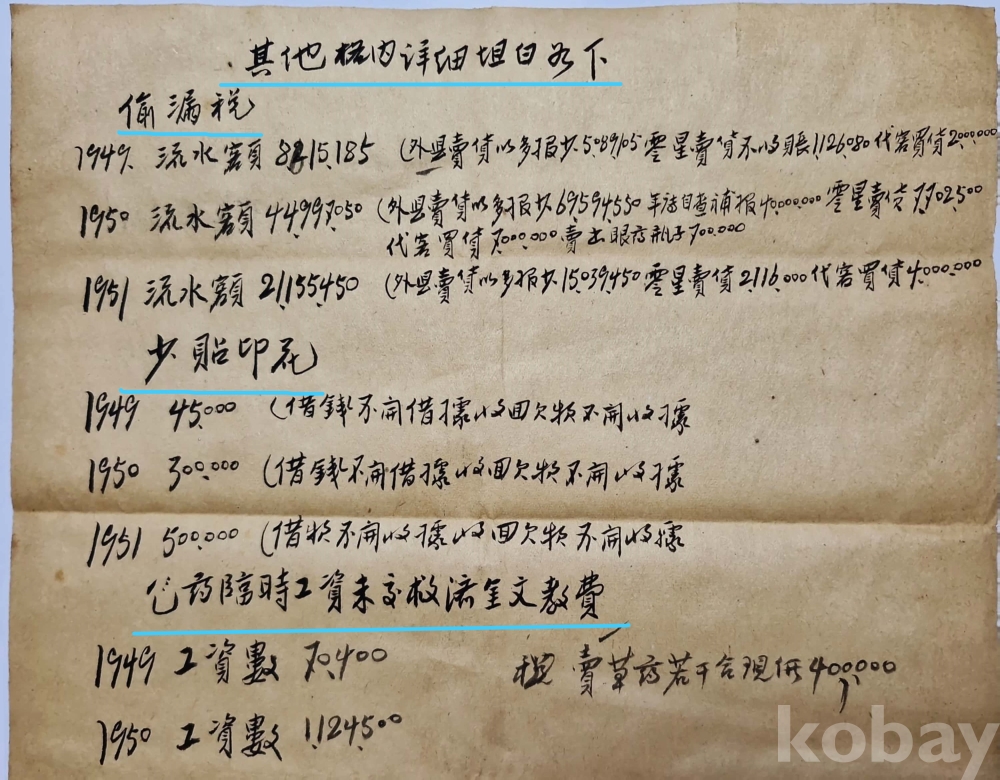 其他栏内详细坦白如下
偷漏税
1949. 流水額 8,815,185 (外埠賣貨以多报少5,089,105零星賣貨不以賬1,126,080代客買貨2,000,000
1950 流水額 44,997,050 (外埠賣貨以多报少69,594,550年结自查補报40,000,000零星賣货7,702,500
代客買貨7,000,000賣出眼药瓶子700,000
1951 流水額 21,155,450 (外埠賣貨以多报少15,039,450零星賣貨2,116,000代客買貨4,000,000
少貼印花
1949 45,000 (借錢不開借據收回欠款不開收據
1950 300,000 (借錢不開借據收回欠款不開收據
1951 500,000 (借款不開收據收回欠款不開收據
包药臨時工資未交救济金文教費
1949 工資數 70,400
税 賣草药若干合現价400,000
1950 工資數 1,124,500
kobay